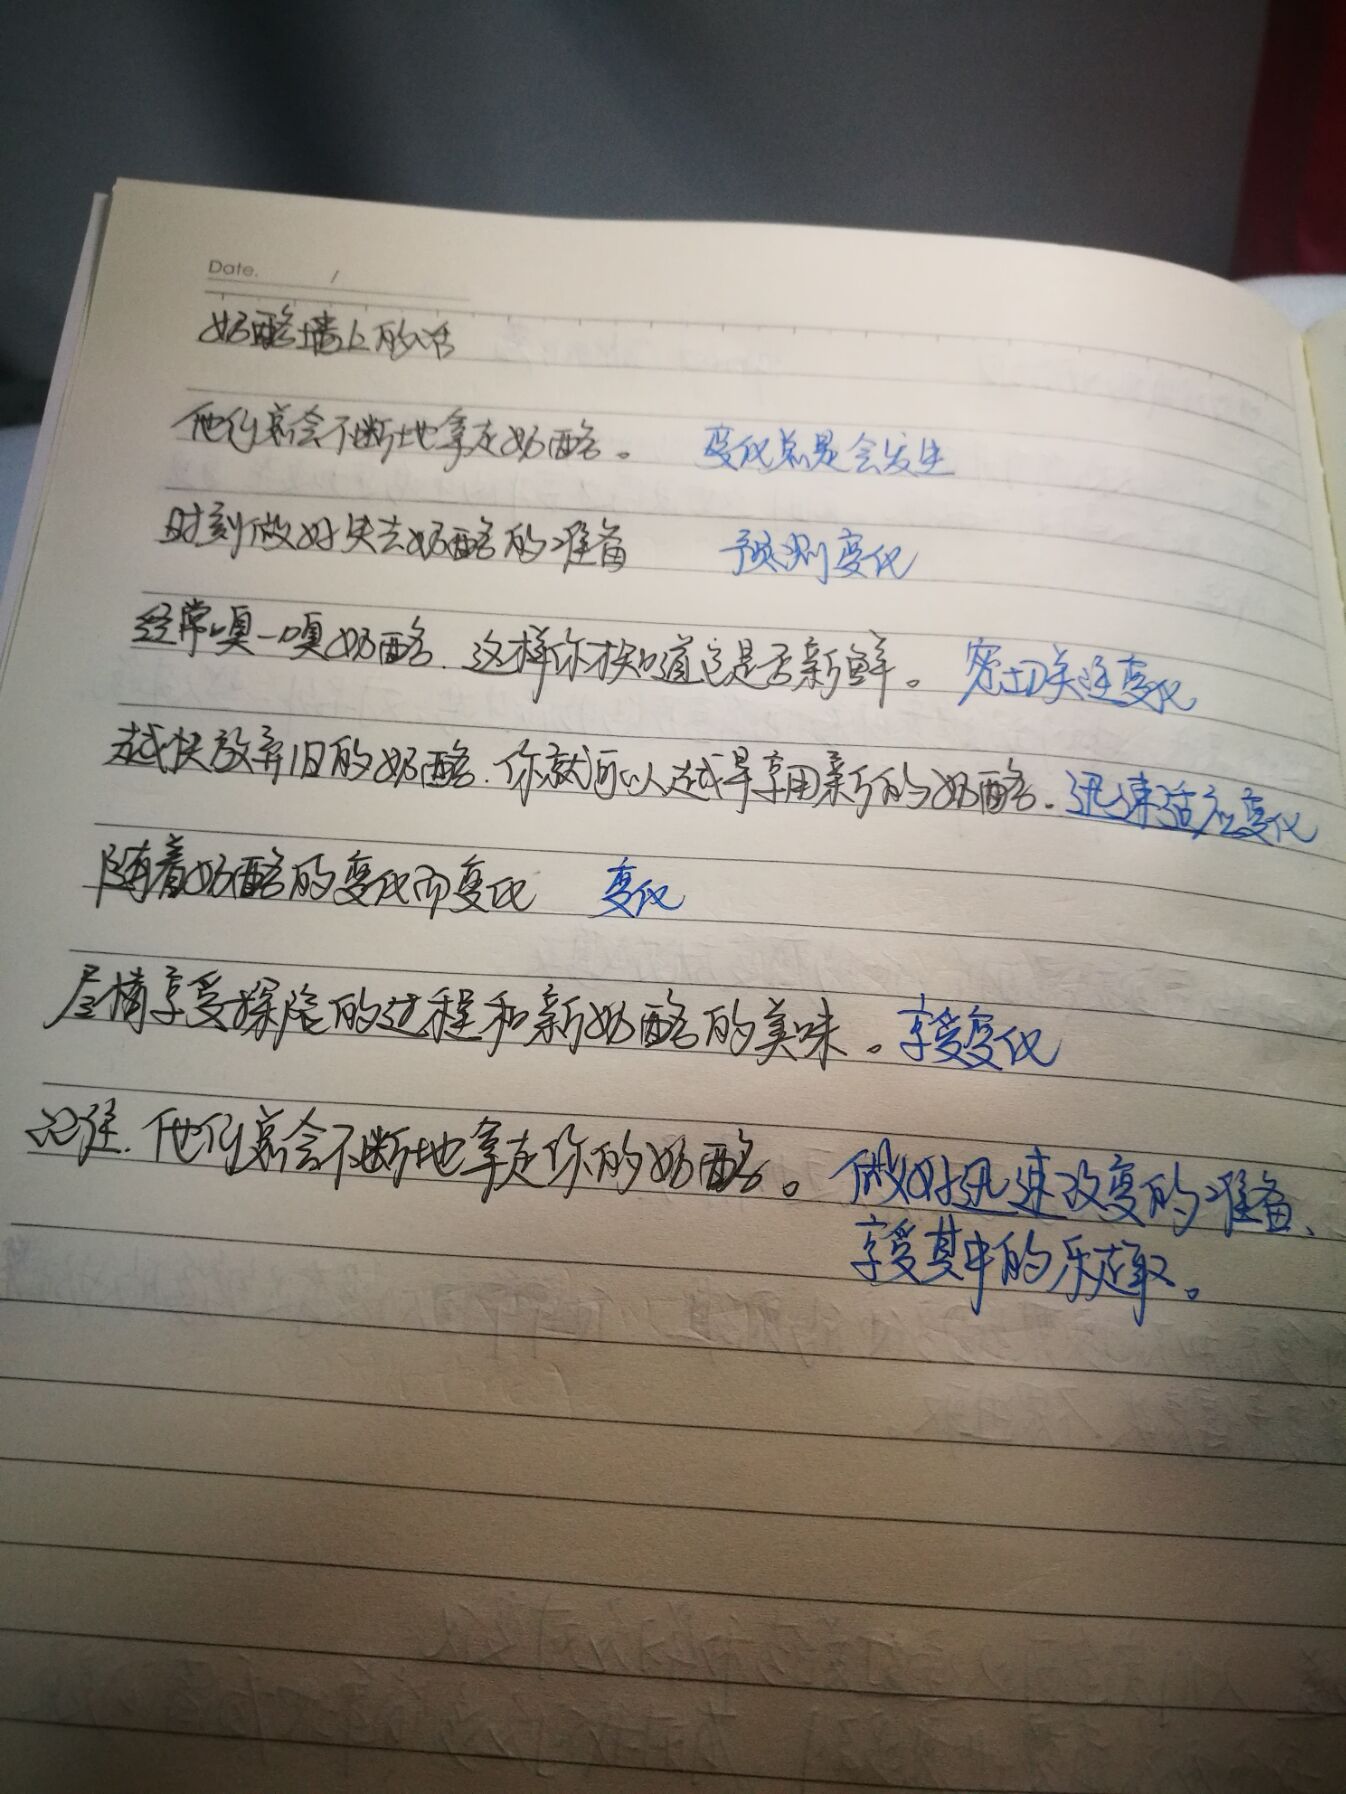 Date. /
奶酪墙上的话
他们总会不断地拿走奶酪。 变化总是会发生
时刻做好失去奶酪的准备 预测变化
经常嗅一嗅奶酪.这样你才知道它是否新鲜。 密切关注变化
越快放弃旧的奶酪.你就可以越早享用新的奶酪. 迅速适应变化
随着奶酪的变化而变化 变化
尽情享受探险的过程和新奶酪的美味。 享受变化
记住.他们总会不断地拿走你的奶酪。 做好迅速改变的准备、
享受其中的乐趣。